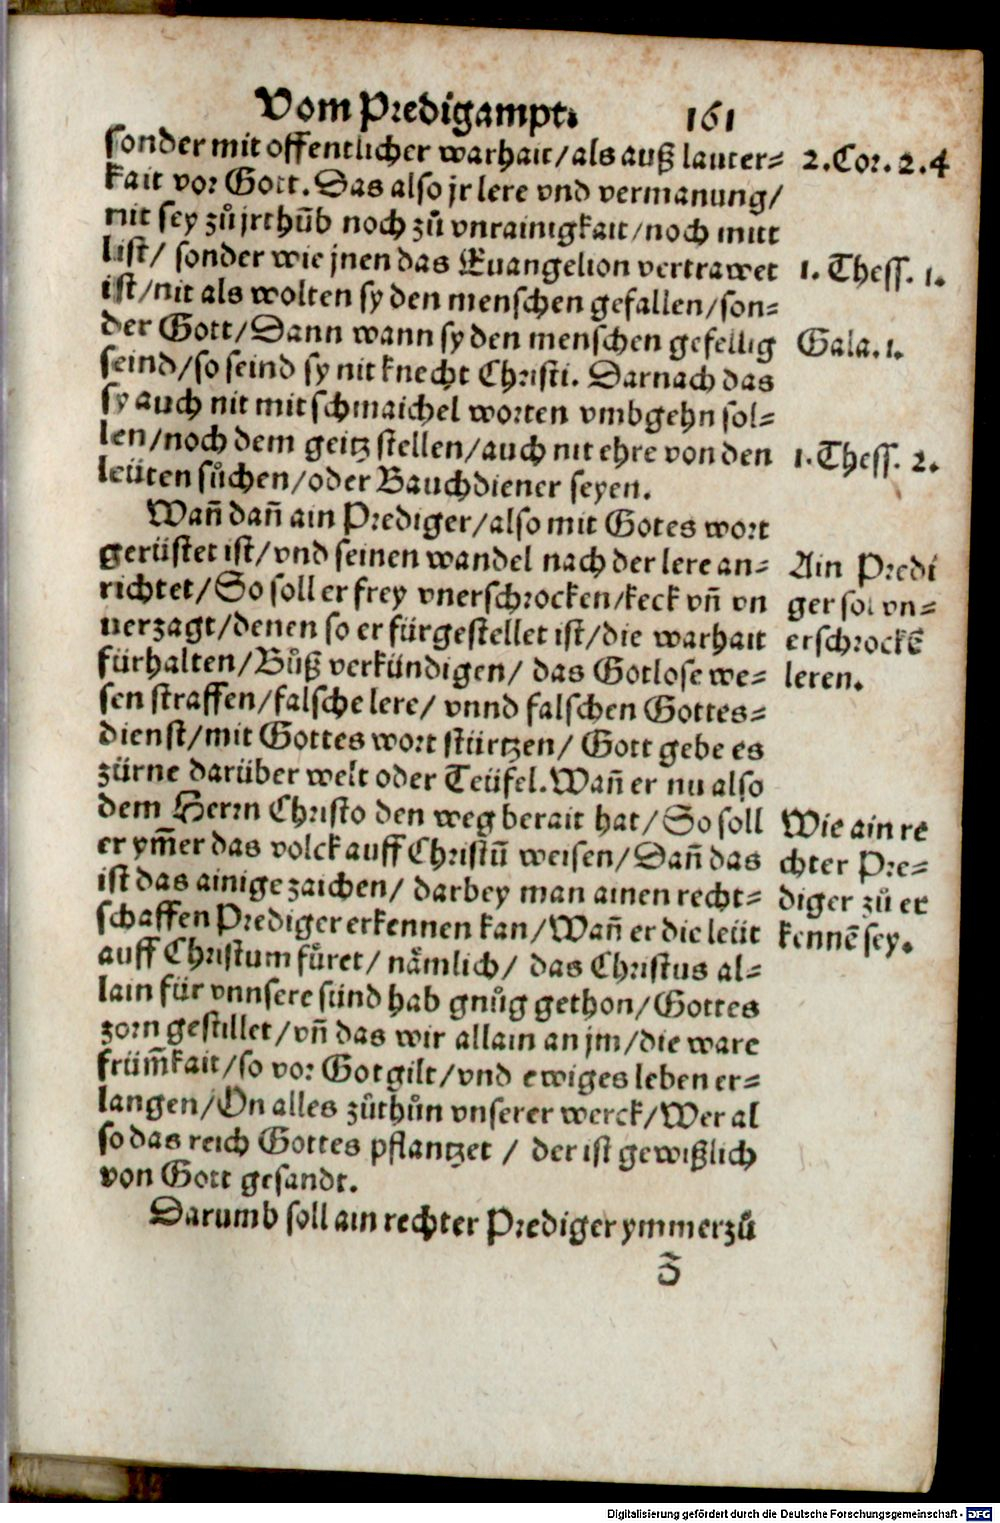 Vom Predigampt. 161
sonder mit offentlicher warhait/als auß lauter-
kait vor Gott. Das also jr lere vnd vermanung/
nit sey zů jrthũb noch zů vnrainigkait/noch mitt
list/ sonder wie jnen das Euangelion vertrawet
ist/nit als wolten sy den menschen gefallen/son-
der Gott/Dann wann sy den menschen gefellig
seind/so seind sy nit knecht Christi. Darnach das
sy auch nit mit schmaichel worten vmbgehn sol-
len/noch dem geitz stellen/auch nit ehre von den
leüten sůchen/oder Bauchdiener seyen.
Wañ dañ ain Prediger/also mit Gotes wort
gerüstet ist/vnd seinen wandel nach der lere an-
richtet/So soll er frey vnerschrocken/keck vñ vn
uerzagt/denen so er fürgestellet ist/die warhait
fürhalten/Bůß verkündigen/ das Gotlose we-
sen straffen/falsche lere/ vnnd falschen Gottes-
dienst/mit Gottes wort stürtzen/ Gott gebe es
zürne darüber welt oder Teüfel. Wañ er nu also
dem Herrn Christo den weg berait hat/So soll
er ym̃er das volck auff Christũ weisen/Dañ das
ist das ainige zaichen/ darbey man ainen recht-
schaffen Prediger erkennen kan/Wañ er die leüt
auff Christum fůret/ nämlich/ das Christus al-
lain für vnnsere sünd hab gnůg gethon/Gottes
zorn gestillet/vñ das wir allain an jm/die ware
früm̃kait/so vor Got gilt/vnd ewiges leben er-
langen/On alles zůthůn vnserer werck/Wer al
so das reich Gottes pflantzet / der ist gewißlich
von Gott gesandt.
Darumb soll ain rechter Prediger ymmerzů
Z
2. Cor. 2. 4
1. Thess. 1.
Gala. 1.
1. Thess. 2.
Ain Predi
ger sol vn-
erschrockẽ
leren.
Wie ain re
chter Pre-
diger zů er
kennẽ sey.
Digitalisierung gefördert durch die Deutsche Forschungsgemeinschaft - DFG